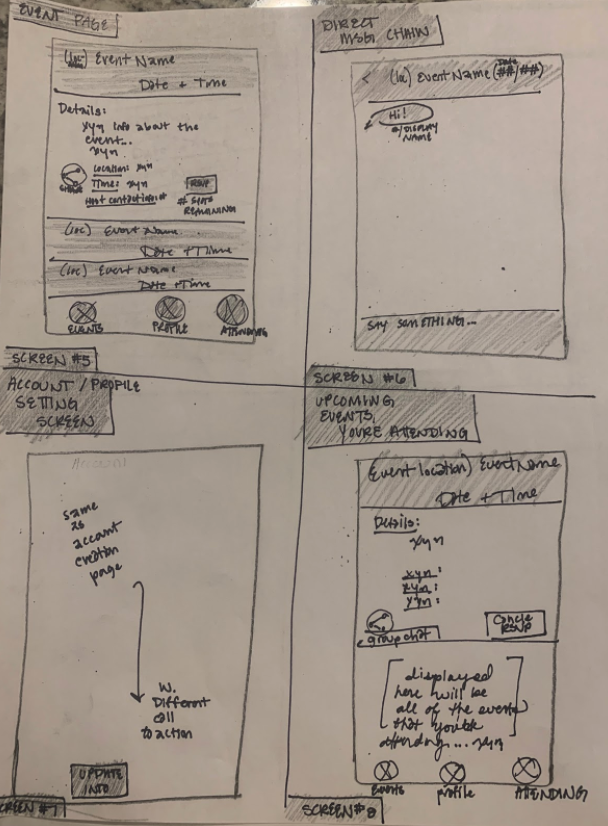 EVENT PAGE
(loc) Event Name
Date + Time
Details:
xyn Info about the
event...
xyn
Location: xyn
Time: xyn
Host contact info:
SHARE
RSVP
# SEATS
REMAINING
(loc) Event Name
Date + TIime
(loc) Event Name
Date + Time
EVENTS
PROFILE
ATTENDING
SCREEN #5
DIRECT
MSG CHAIN
< (loc) Event Name (##/##)
Date
Hi!
@DISPLAY
NAME
SAY SOMETHING...
SCREEN #6
ACCOUNT / PROFILE
SETTING
SCREEN
Account
same
as
account
creation
page
W.
Different
call
to action
UPDATE
INFO
SCREEN #7
UPCOMING
EVENTS
YOU'RE ATTENDING
Event location) Event Name
Date + Time
Details:
xyn
xyn:
xyn:
xyn:
group chat
Cancle
RSVP
displayed
here will be
all of the events
that you're
attending... xyn
Events
profile
ATTENDING
SCREEN #8